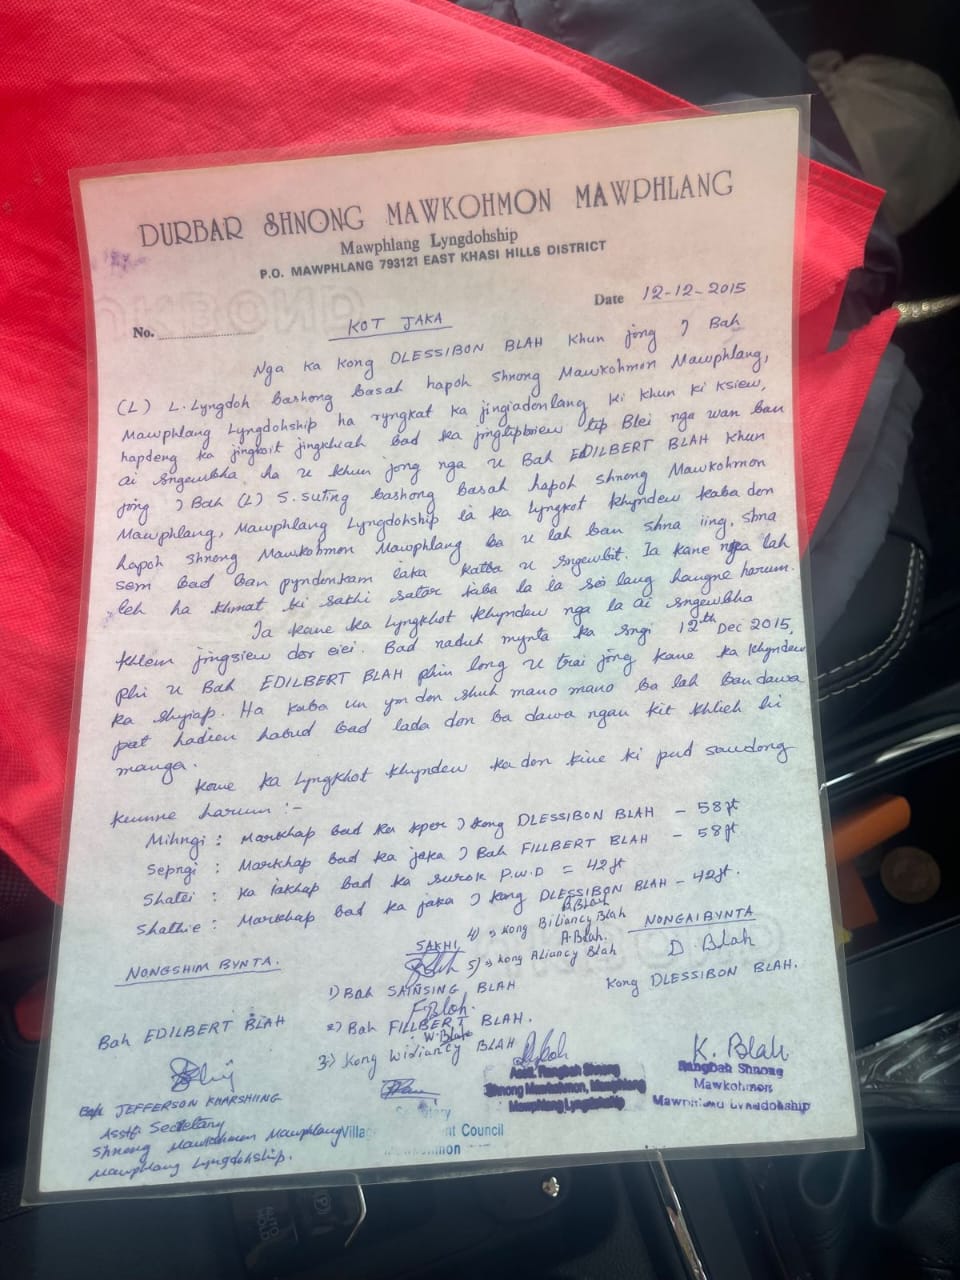 DURBAR SHNONG MAWKOHMON MAWPHLANG
Mawphlang Lyngdohship
P.O. MAWPHLANG 793121 EAST KHASI HILLS DISTRICT
Date 12-12-2015
No. ....................
KOT JAKA
Nga ka Kong DLESSIBON BLAH Khun jong ) Bah
(L) L. Lyngdoh bashong basah hapoh Shnong Mawkohmon Mawphlang,
Mawphlang Lyngdohship ha ryngkat ka jingiadonlang ki khun ki ksiew,
hapdeng ka jingkoit jingkhiah bad ka jingtipbriew tip Blei nga wan ban
ai sngewbha ha u khun jong nga u Bah EDILBERT BLAH Khun
jong ) Bah (L) S. Suting bashong basah hapoh Shnong Mawkohmon
Mawphlang, Mawphlang Lyngdohship ia ka lyngkot khyndew kaba don
hapoh Shnong Mawkohmon Mawphlang ba u lah ban shna iing, shna
sem bad ban pyndonkam iaka katba u sngewbit. Ia kane nga lah
leh ha khmat ki sakhi satar kiba la ia soi lang hangne harum.
Ia kane ka Lyngkhot Khyndew nga la ai sngewbha
khlem jingsiew dor eiei. Bad naduh mynta ka sngi 12th Dec 2015,
phi u Bah EDILBERT BLAH phin long u trai jong kane ka Khyndew
ka shyiap. Ha kaba un ym don shuh mano mano ba lah ban dawa
pat hadien habud bad lada don ba dawa ngan kit khlieh hi
manga.
Kane ka Lyngkhot Khyndew ka don kine ki pud saudong
kumne harum :-
Mihngi : Markhap bad ka kper ) Kong DLESSIBON BLAH - 58ft
Sepngi : Markhap bad ka jaka ) Bah FILLBERT BLAH - 58ft
Shatei : Ka iakhap bad ka surok P.W.D = 42ft
Shathie : Markhap bad ka jaka ) Kong DLESSIBON BLAH - 42ft.
NONGSHIM BYNTA.
Bah EDILBERT BLAH
SAKHI
1) Bah SAINSING BLAH
F. Blah.
2) Bah FILLBERT BLAH.
W. Blah
3) Kong WIDIANCY BLAH
B. Blah
4) Kong Biliancy Blah
A. Blah.
5) Kong Aliancy Blah
NONGAI BYNTA
D. Blah
Kong DLESSIBON BLAH.
Bah JEFFERSON KHARSHIING
Asstt Secretary
Shnong Mawkohmon Mawphlang
Mawphlang Lyngdohship.
Secretary
Council
Asstt. Rangbah Shnong
Shnong Mawkohmon, Mawphlang
Mawphlang Lyngdohship
K. Blah
Rangbah Shnong
Mawkohmon
Mawphlang Lyngdohship